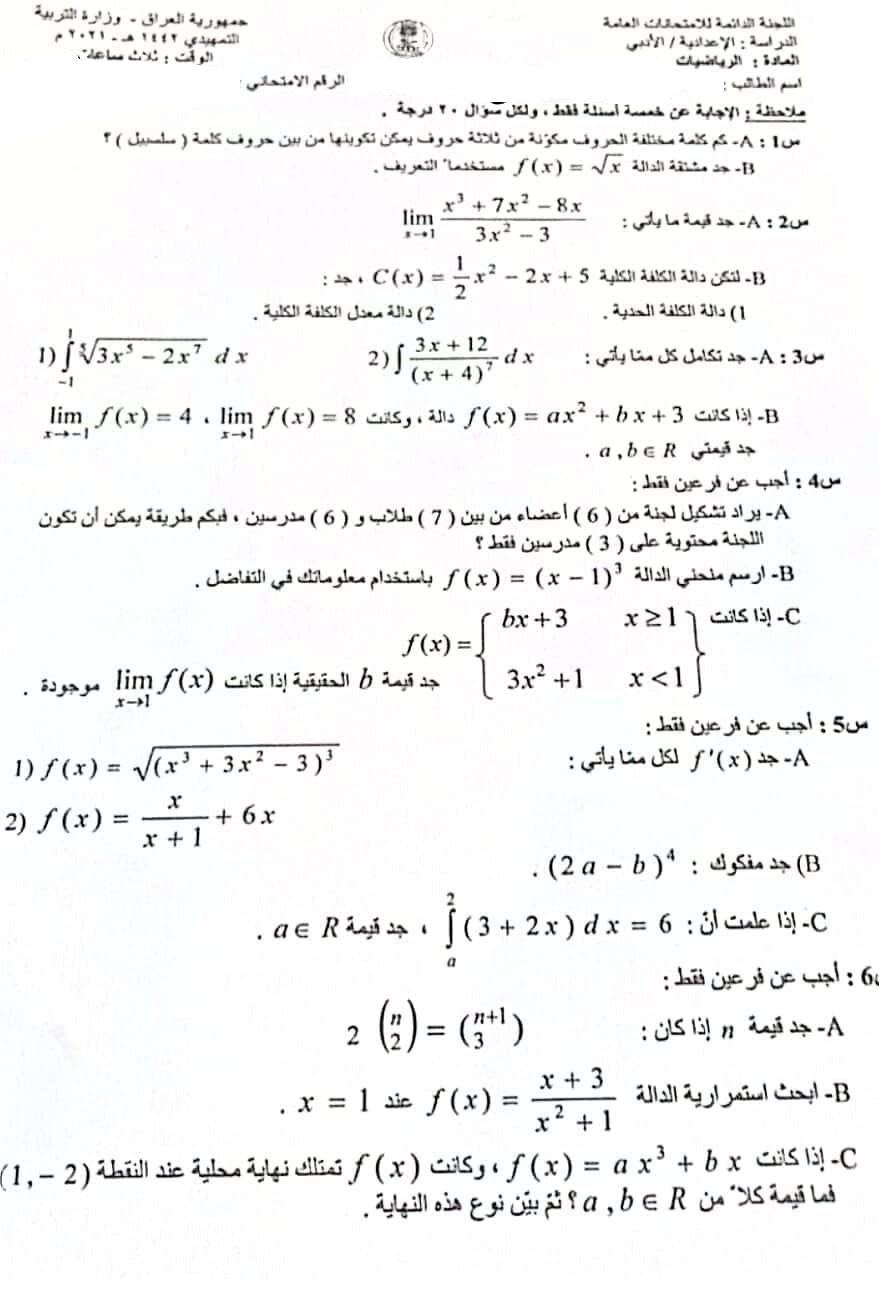 اللجنة الدائمة للامتحانات العامة
الدراسة : الإعدادية / الأدبي
المادة : الرياضيات
اسم الطالب :
جمهورية العراق - وزارة التربية
التمهيدي ١٤٤٢ هـ - ٢٠٢١ م
الوقت : ثلاث ساعات
الرقم الامتحاني :
ملاحظة : الإجابة عن خمسة أسئلة فقط ، ولكل سؤال ٢٠ درجة .
س1 : A- كم كلمة مختلفة الحروف مكوّنة من ثلاثة حروف يمكن تكوينها من بين حروف كلمة ( سلسبيل ) ؟
B- جد مشتقة الدالة f(x) = √x مستخدماً التعريف .
س2 : A- جد قيمة ما يأتي : lim x→1 (x³ + 7x² − 8x)/(3x² − 3)
B- لتكن دالة الكلفة الكلية C(x) = 1/2 x² − 2x + 5 ، جد :
1) دالة الكلفة الحدية . 2) دالة معدل الكلفة الكلية .
س3 : A- جد تكامل كل ممّا يأتي : 1) ∫₋₁¹ ⁵√(3x⁵ − 2x⁷) dx 2) ∫ (3x + 12)/(x + 4)⁷ dx
B- إذا كانت f(x) = ax² + bx + 3 دالة ، وكانت lim x→1 f(x) = 8 ، lim x→−1 f(x) = 4
جد قيمتي a , b ∈ R .
س4 : أجب عن فرعين فقط :
A- يراد تشكيل لجنة من ( 6 ) أعضاء من بين ( 7 ) طلاب و ( 6 ) مدرسين ، فبكم طريقة يمكن أن تكون
اللجنة محتوية على ( 3 ) مدرسين فقط ؟
B- ارسم منحني الدالة f(x) = (x − 1)³ باستخدام معلوماتك في التفاضل .
C- إذا كانت f(x) = { bx + 3 x ≥ 1
3x² + 1 x < 1 } جد قيمة b الحقيقية إذا كانت lim x→1 f(x) موجودة .
س5 : أجب عن فرعين فقط :
A- جد f'(x) لكل ممّا يأتي : 1) f(x) = √(x³ + 3x² − 3)³
2) f(x) = x/(x + 1) + 6x
B) جد مفكوك : (2a − b)⁴ .
C- إذا علمت أنّ : ∫ₐ² (3 + 2x) dx = 6 ، جد قيمة a ∈ R .
6 : أجب عن فرعين فقط :
A- جد قيمة n إذا كان : 2 (n 2) = (n+1 3)
B- ابحث استمرارية الدالة f(x) = (x + 3)/(x² + 1) عند x = 1 .
C- إذا كانت f(x) = ax³ + bx ، وكانت f(x) تمتلك نهاية محلية عند النقطة (1, −2)
فما قيمة كلاً من a , b ∈ R ؟ ثمّ بيّن نوع هذه النهاية .